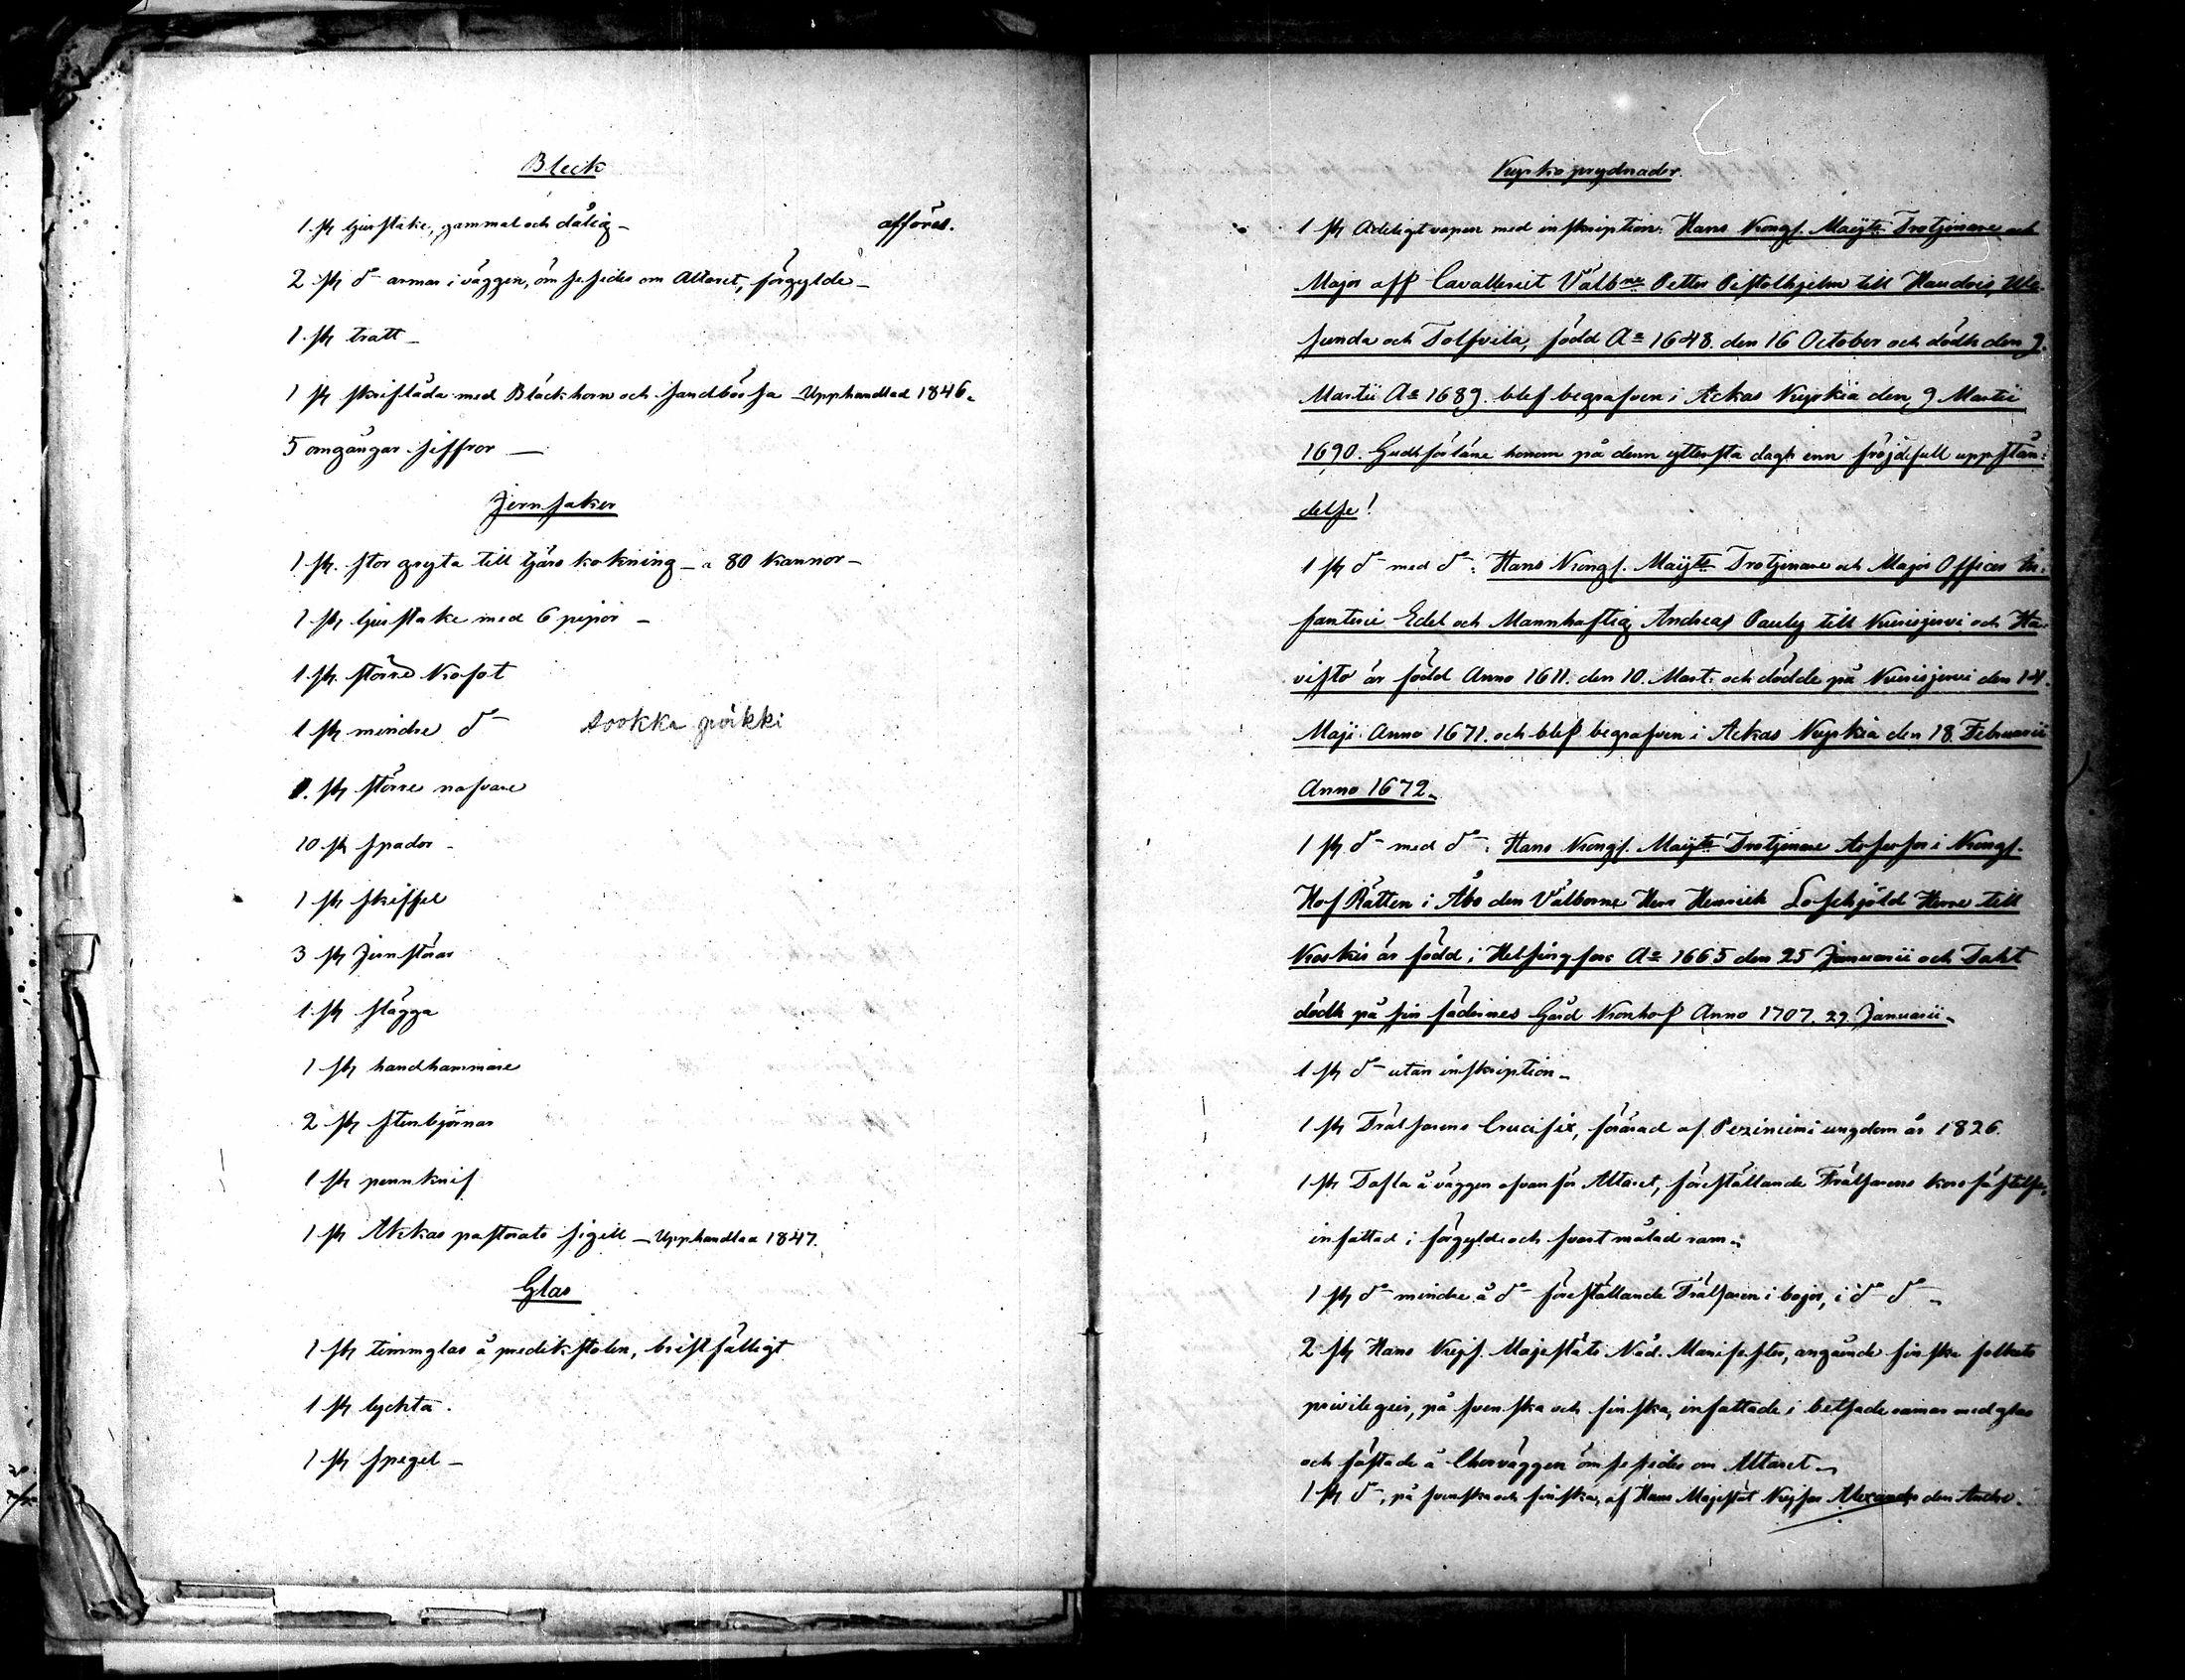 Bleck
1 st ljusstake, gammal och dålig – afföres.
2 st d:o armar i väggen, ömse sidor om Altaret, förgylde –
1 st tratt –
1 st skriflåda med Bläckhorn och sandbössa – Upphandlad 1846.
5 omgångar siffror –
Jernsaker
1 st. stor gryta till tjärs kokning – a 80 kannor –
1 st ljusstake med 6 pipor –
1 st. större Kofot
1 st mindre d:o sookka poikki
1. st större nafvare
10 st spador –
1 st skiffel
3 st Jernstörar
1 st slägga
1 st handhammare
2 st stenbjörnar
1 st pennknif
1 st Akkas pastorats sigill – Upphandlad 1847.
Glas
1 st timmglas å predikstolen, bristfälligt
1 st lyckta.
1 st spegel –
Kyrkoprydnader.
1 st Adeligt vapen med inskription: Hans Kongl. Maijts Trotjenare och
Major aff Cavalleriet Välbne Petter Pistolhjelm till Haudois, Ule-
sunda och Tolfvila, född Ao 1648. den 16 October och dödh den 9.
Martii Ao 1689. blef begrafven i Ackas Kyrkia den 9 Martii
1690. Gudh förläne honom på denn yttersta dagh enn fröjdefull uppstån-
delse!
1 st d:o med d:o: Hans Kongl. Maijts Trotjenare och Major Officer In-
fanterie Edel och Mannhaftig Andreas Pauly till Kurisjervi och Ha-
visto är född Anno 1611. den 10. Mart. och dödde på Kurisjervi den 14.
Maji Anno 1671. och blef begrafven i Ackas Kyrkia den 18. Februarii
Anno 1672.
1 st d:o med d:o: Hans Kongl. Maijts Trotjenare Assessor i Kongl.
Hof Rätten i Åbo den Välborne Herr Henrich Loschjöld Herre till
Koskis är född i Helsingfors Ao 1665 den 25 Januarii och Taht
dödh på sin fädernes Gård Kronhof Anno 1707. 29 Januarii.
1 st d:o utan inskription –
1 st Frälsarens Crucifix, förärad af ungdom år 1826.
1 st Tafla å väggen ofvanför Altaret, föreställande Frälsarens korsfästelse,
infattad i förgyld och svart målad ram –
1 st d:o mindre å d:o föreställande Frälsaren i bojor, i d:o d:o –
2 st Hans Kejs. Majestäts Nåd. Manifester, angående finska folkets
privilegier, på svenska och finska, infattade i betsade ramar med glas
och fästade å Chorväggen ömse sidor om Altaret –
1 st d:o, på svenska och finska, af Hans Majestät Kejsar Alexander den Andre.